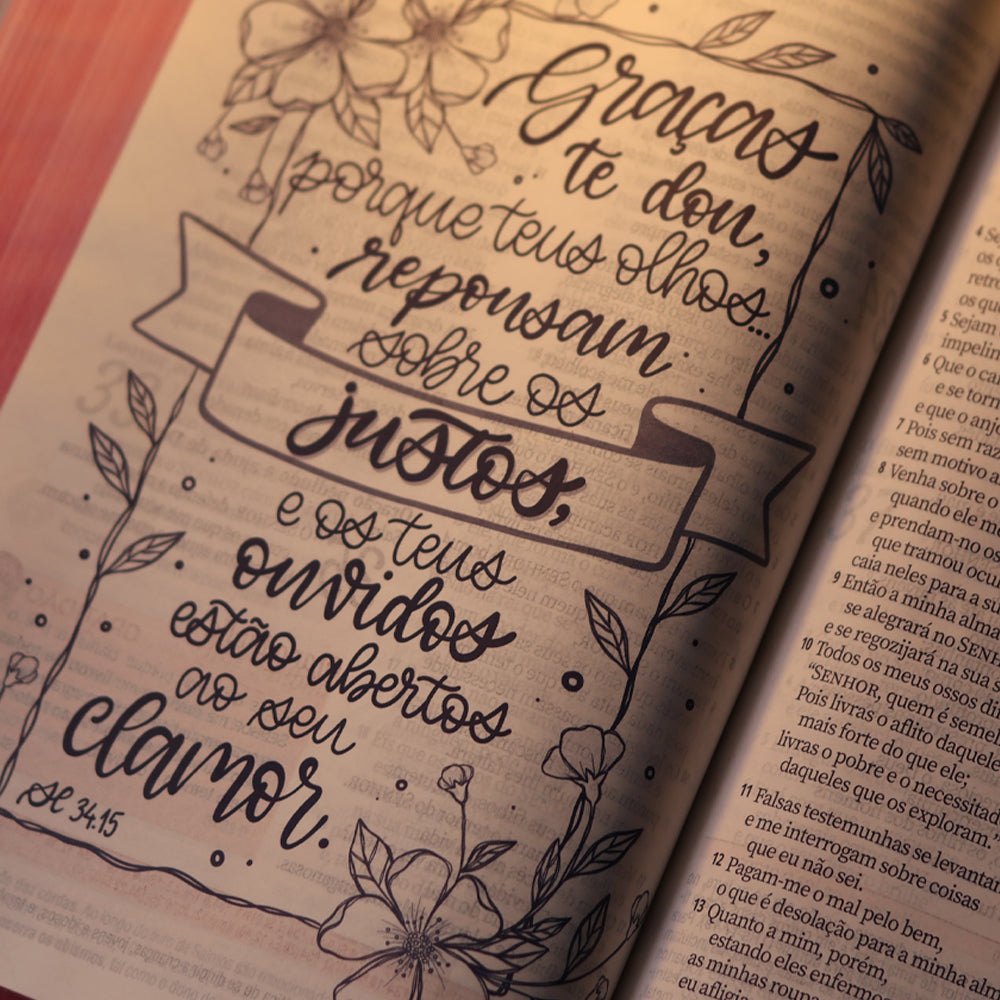 Graças
te dou,
porque teus olhos...
reponsam
sobre os
justos,
e os teus
ouvidos
estão abertos
ao seu
clamor.
Sl 34.15
4
os
retro
os qu
5 Sejam
impelin
6 Que o ca
e se torn
e que o anjo
7 Pois sem raz
sem motivo a
8 Venha sobre o
quando ele m
e prendam-no os
que tramou ocu
caia neles para a su
9 Então a minha alma
se alegrará no SENH
e se regozijará na sua s
10 Todos os meus ossos di
"SENHOR, quem é semel
Pois livras o aflito daquele
mais forte do que ele;
livras o pobre e o necessitad
daqueles que os exploram."
11 Falsas testemunhas se levantar
e me interrogam sobre coisas
que eu não sei.
12 Pagam-me o mal pelo bem,
o que é desolação para a minha alm
13 Quanto a mim, porém,
estando eles enfermo
as minhas roup
eu afligia